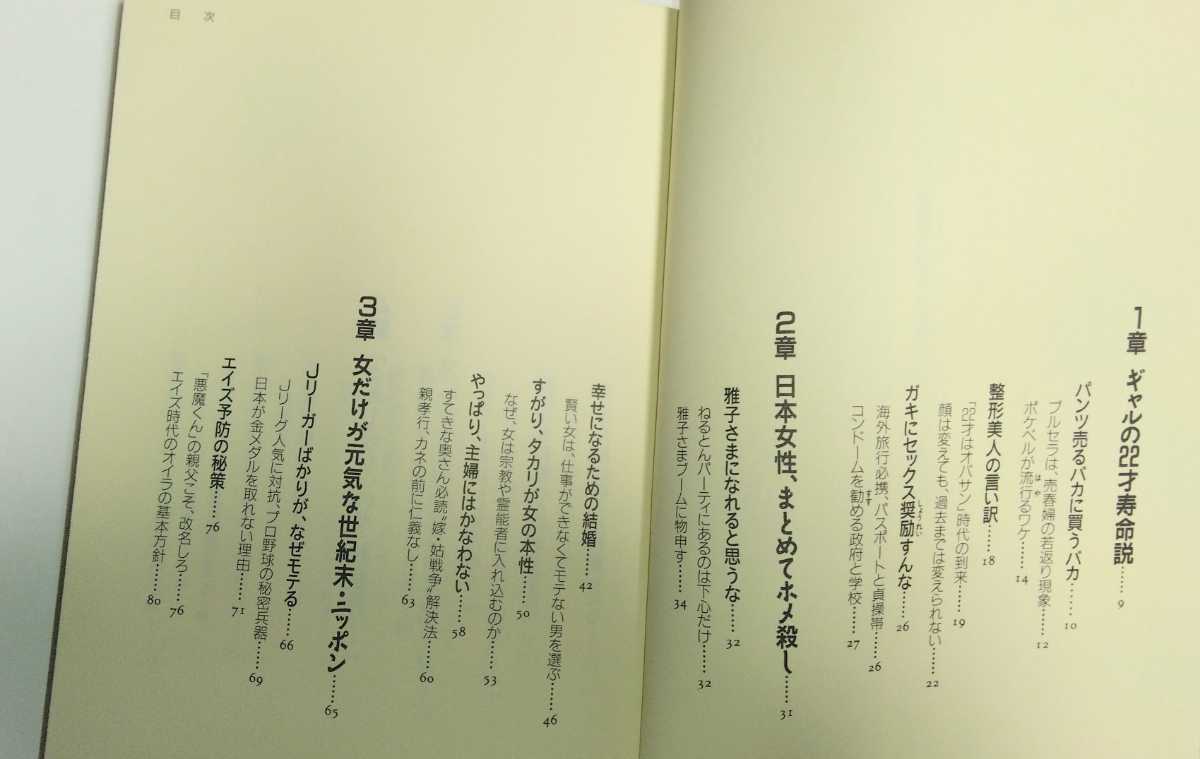 1章 ギャルの22才寿命説……9
パンツ売るバカに買うバカ……10
ブルセラは、売春婦の若返り現象……12
ポケベルが流行るワケ……14
はや
整形美人の言い訳……18
「22才はオバサン」時代の到来……19
顔は変えても、過去までは変えられない……22
ガキにセックス奨励すんな……26
しょうれい
海外旅行必携、パスポートと貞操帯……26
コンドームを勧める政府と学校……27
すす
2章 日本女性、まとめてホメ殺し……31
雅子さまになれると思うな……32
ねるとんパーティにあるのは下心だけ……32
雅子さまブームに物申す……34
目 次
幸せになるための結婚……42
賢い女は、仕事ができなくてモテない男を選ぶ……46
すがり、タカリが女の本性……50
なぜ、女は宗教や霊能者に入れ込むのか……53
やっぱり、主婦にはかなわない……58
すてきな奥さん必読〝嫁・姑戦争〟解決法……60
親孝行、カネの前に仁義なし……63
3章 女だけが元気な世紀末・ニッポン……65
Jリーガーばかりが、なぜモテる……66
Jリーグ人気に対抗、プロ野球の秘密兵器……69
日本が金メダルを取れない理由……71
エイズ予防の秘策……76
「悪魔くん」の親父こそ、改名しろ……76
エイズ時代のオイラの基本方針……80